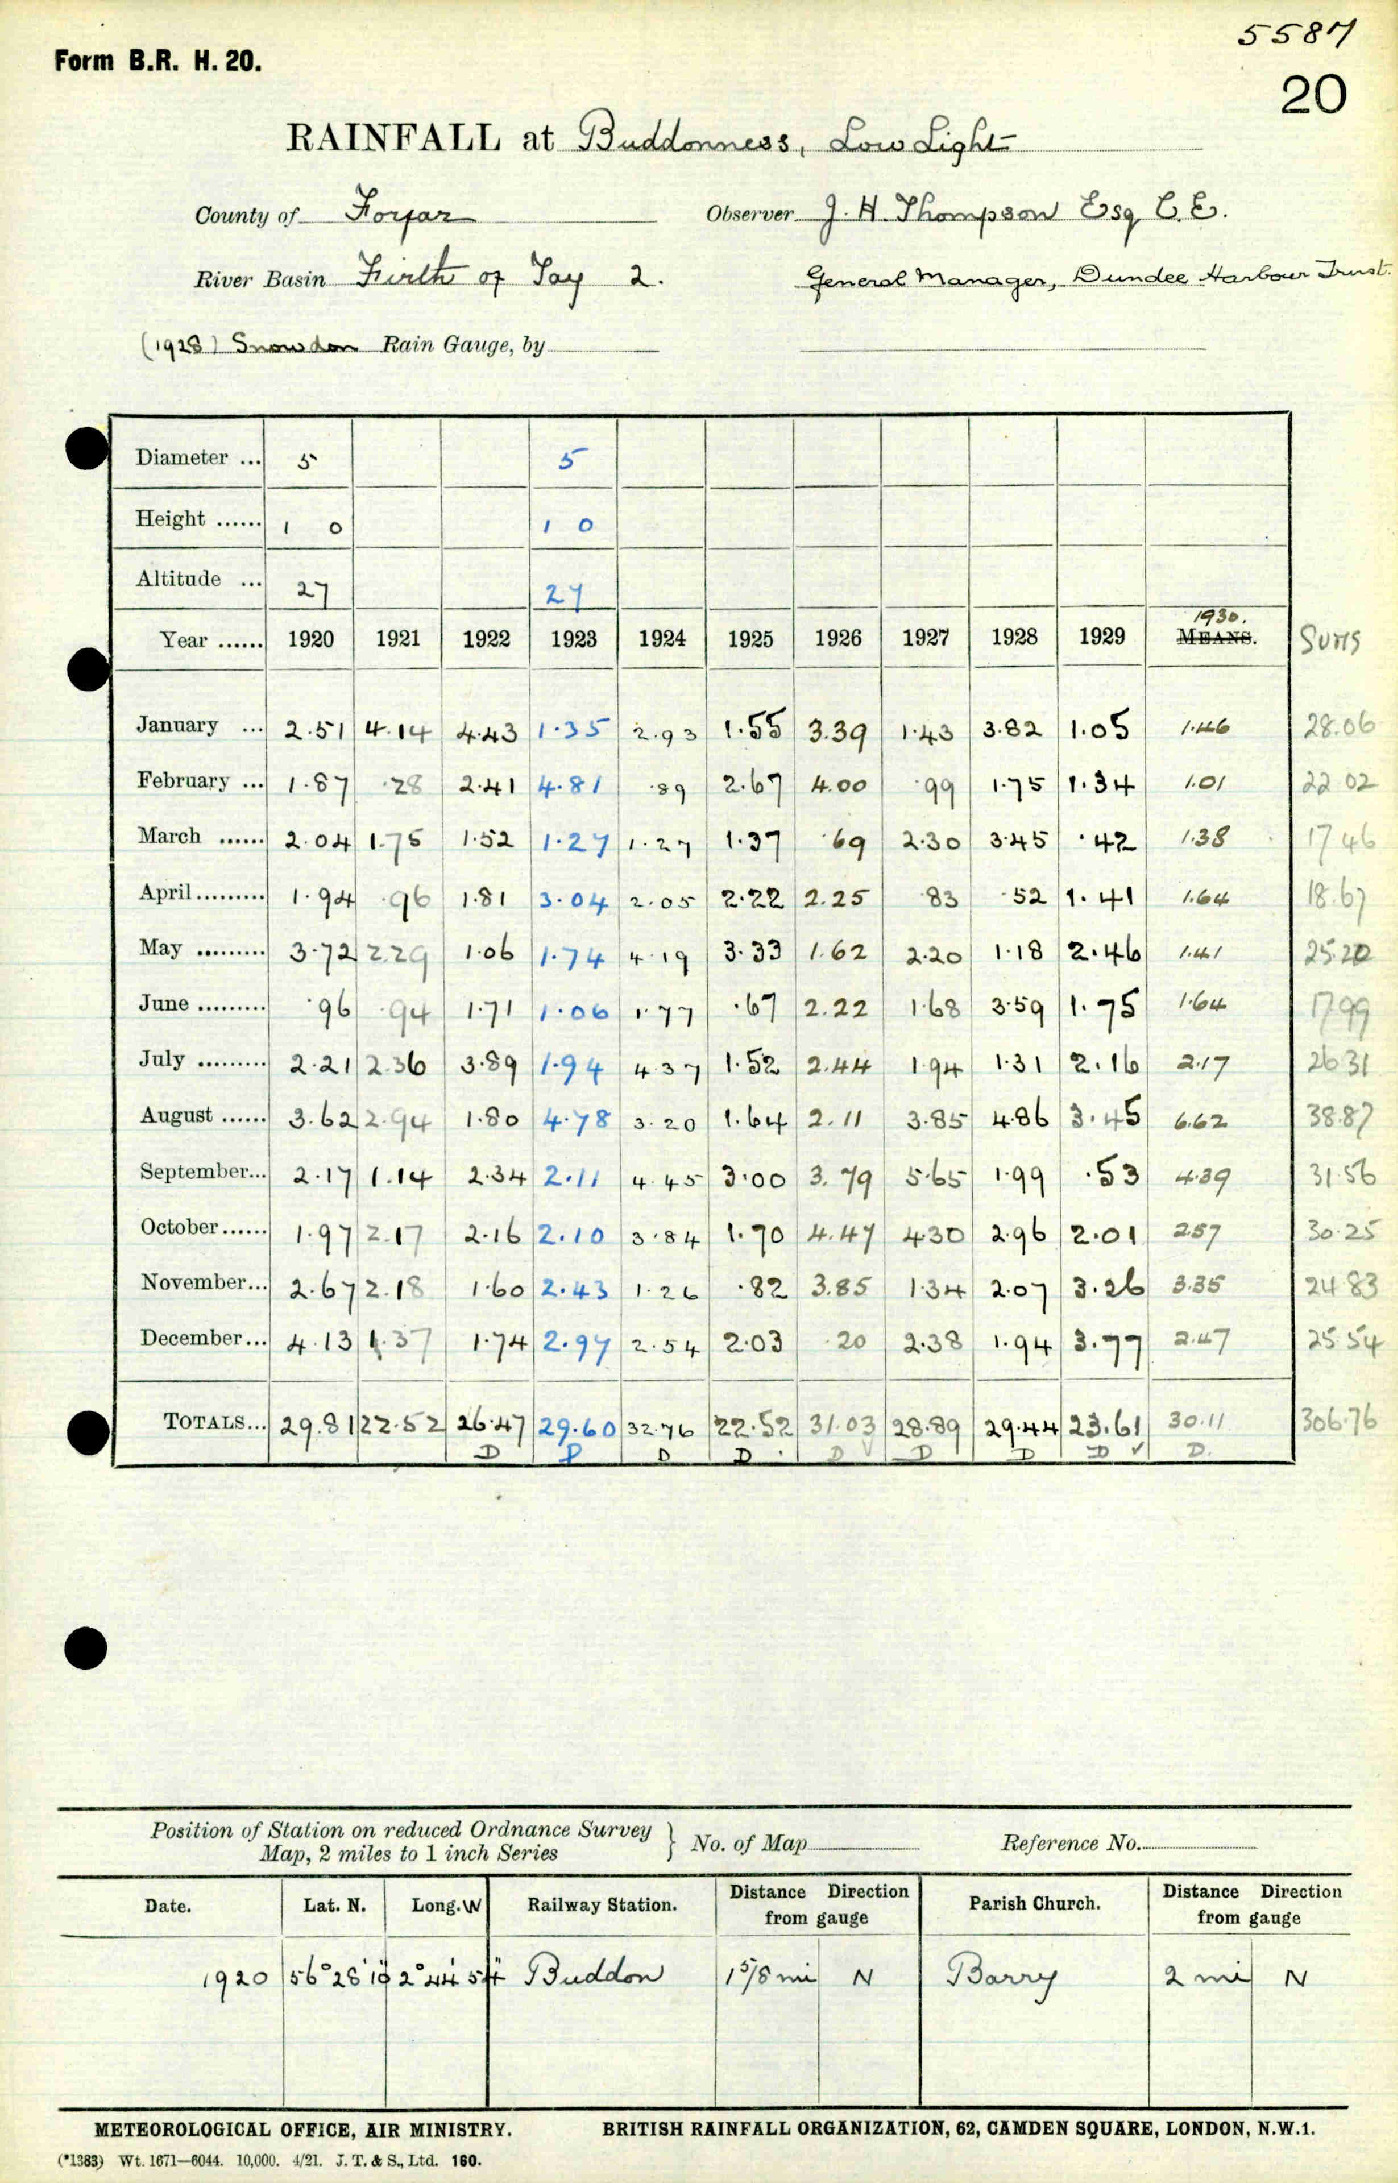 5587
Form B.R. H. 20.
20
RAINFALL at Buddonness, Low Light
County of Forfar Observer J. H. Thompson Esq C.E.
River Basin Firth of Tay 2. General Manager, Dundee Harbour Trust.
(1928) Snowdon Rain Gauge, by
Diameter ... 5 5
Height ...... 1 0 1 0
Altitude ... 27 27
1930.
Year ...... 1920 1921 1922 1923 1924 1925 1926 1927 1928 1929 MEANS. Sums
January ... 2.51 4.14 4.43 1.35 2.93 1.55 3.39 1.43 3.82 1.05 1.46 28.06
February ... 1.87 .28 2.41 4.81 .89 2.67 4.00 .99 1.75 1.34 1.01 22.02
March ...... 2.04 1.75 1.52 1.27 1.27 1.37 .69 2.30 3.45 .42 1.38 17.46
April ......... 1.94 .96 1.81 3.04 2.05 2.22 2.25 .83 .52 1.41 1.64 18.67
May ......... 3.72 2.29 1.06 1.74 4.19 3.33 1.62 2.20 1.18 2.46 1.41 25.20
June ......... .96 .94 1.71 1.06 1.77 .67 2.22 1.68 3.59 1.75 1.64 17.99
July ......... 2.21 2.36 3.89 1.94 4.37 1.52 2.44 1.94 1.31 2.16 2.17 26.31
August ...... 3.62 2.94 1.80 4.78 3.20 1.64 2.11 3.85 4.86 3.45 6.62 38.87
September... 2.17 1.14 2.34 2.11 4.45 3.00 3.79 5.65 1.99 .53 4.39 31.56
October...... 1.97 2.17 2.16 2.10 3.84 1.70 4.47 4.30 2.96 2.01 2.57 30.25
November... 2.67 2.18 1.60 2.43 1.26 .82 3.85 1.34 2.07 3.26 3.35 24.83
December... 4.13 1.37 1.74 2.97 2.54 2.03 .20 2.38 1.94 3.77 2.47 25.54
TOTALS... 29.81 22.52 26.47 29.60 32.76 22.52 31.03 28.89 29.44 23.61 30.11 306.76
D D D D D D D D D.
Position of Station on reduced Ordnance Survey
Map, 2 miles to 1 inch Series } No. of Map Reference No.
Date. Lat. N. Long. W Railway Station. Distance Direction from gauge Parish Church. Distance Direction from gauge
1920 56° 28' 10" 2° 44' 54" Buddon 1 5/8 mi N Barry 2 mi N
METEOROLOGICAL OFFICE, AIR MINISTRY. BRITISH RAINFALL ORGANIZATION, 62, CAMDEN SQUARE, LONDON, N.W.1.
(*1383) Wt. 1671—6044. 10,000. 4/21. J. T. & S., Ltd. 160.